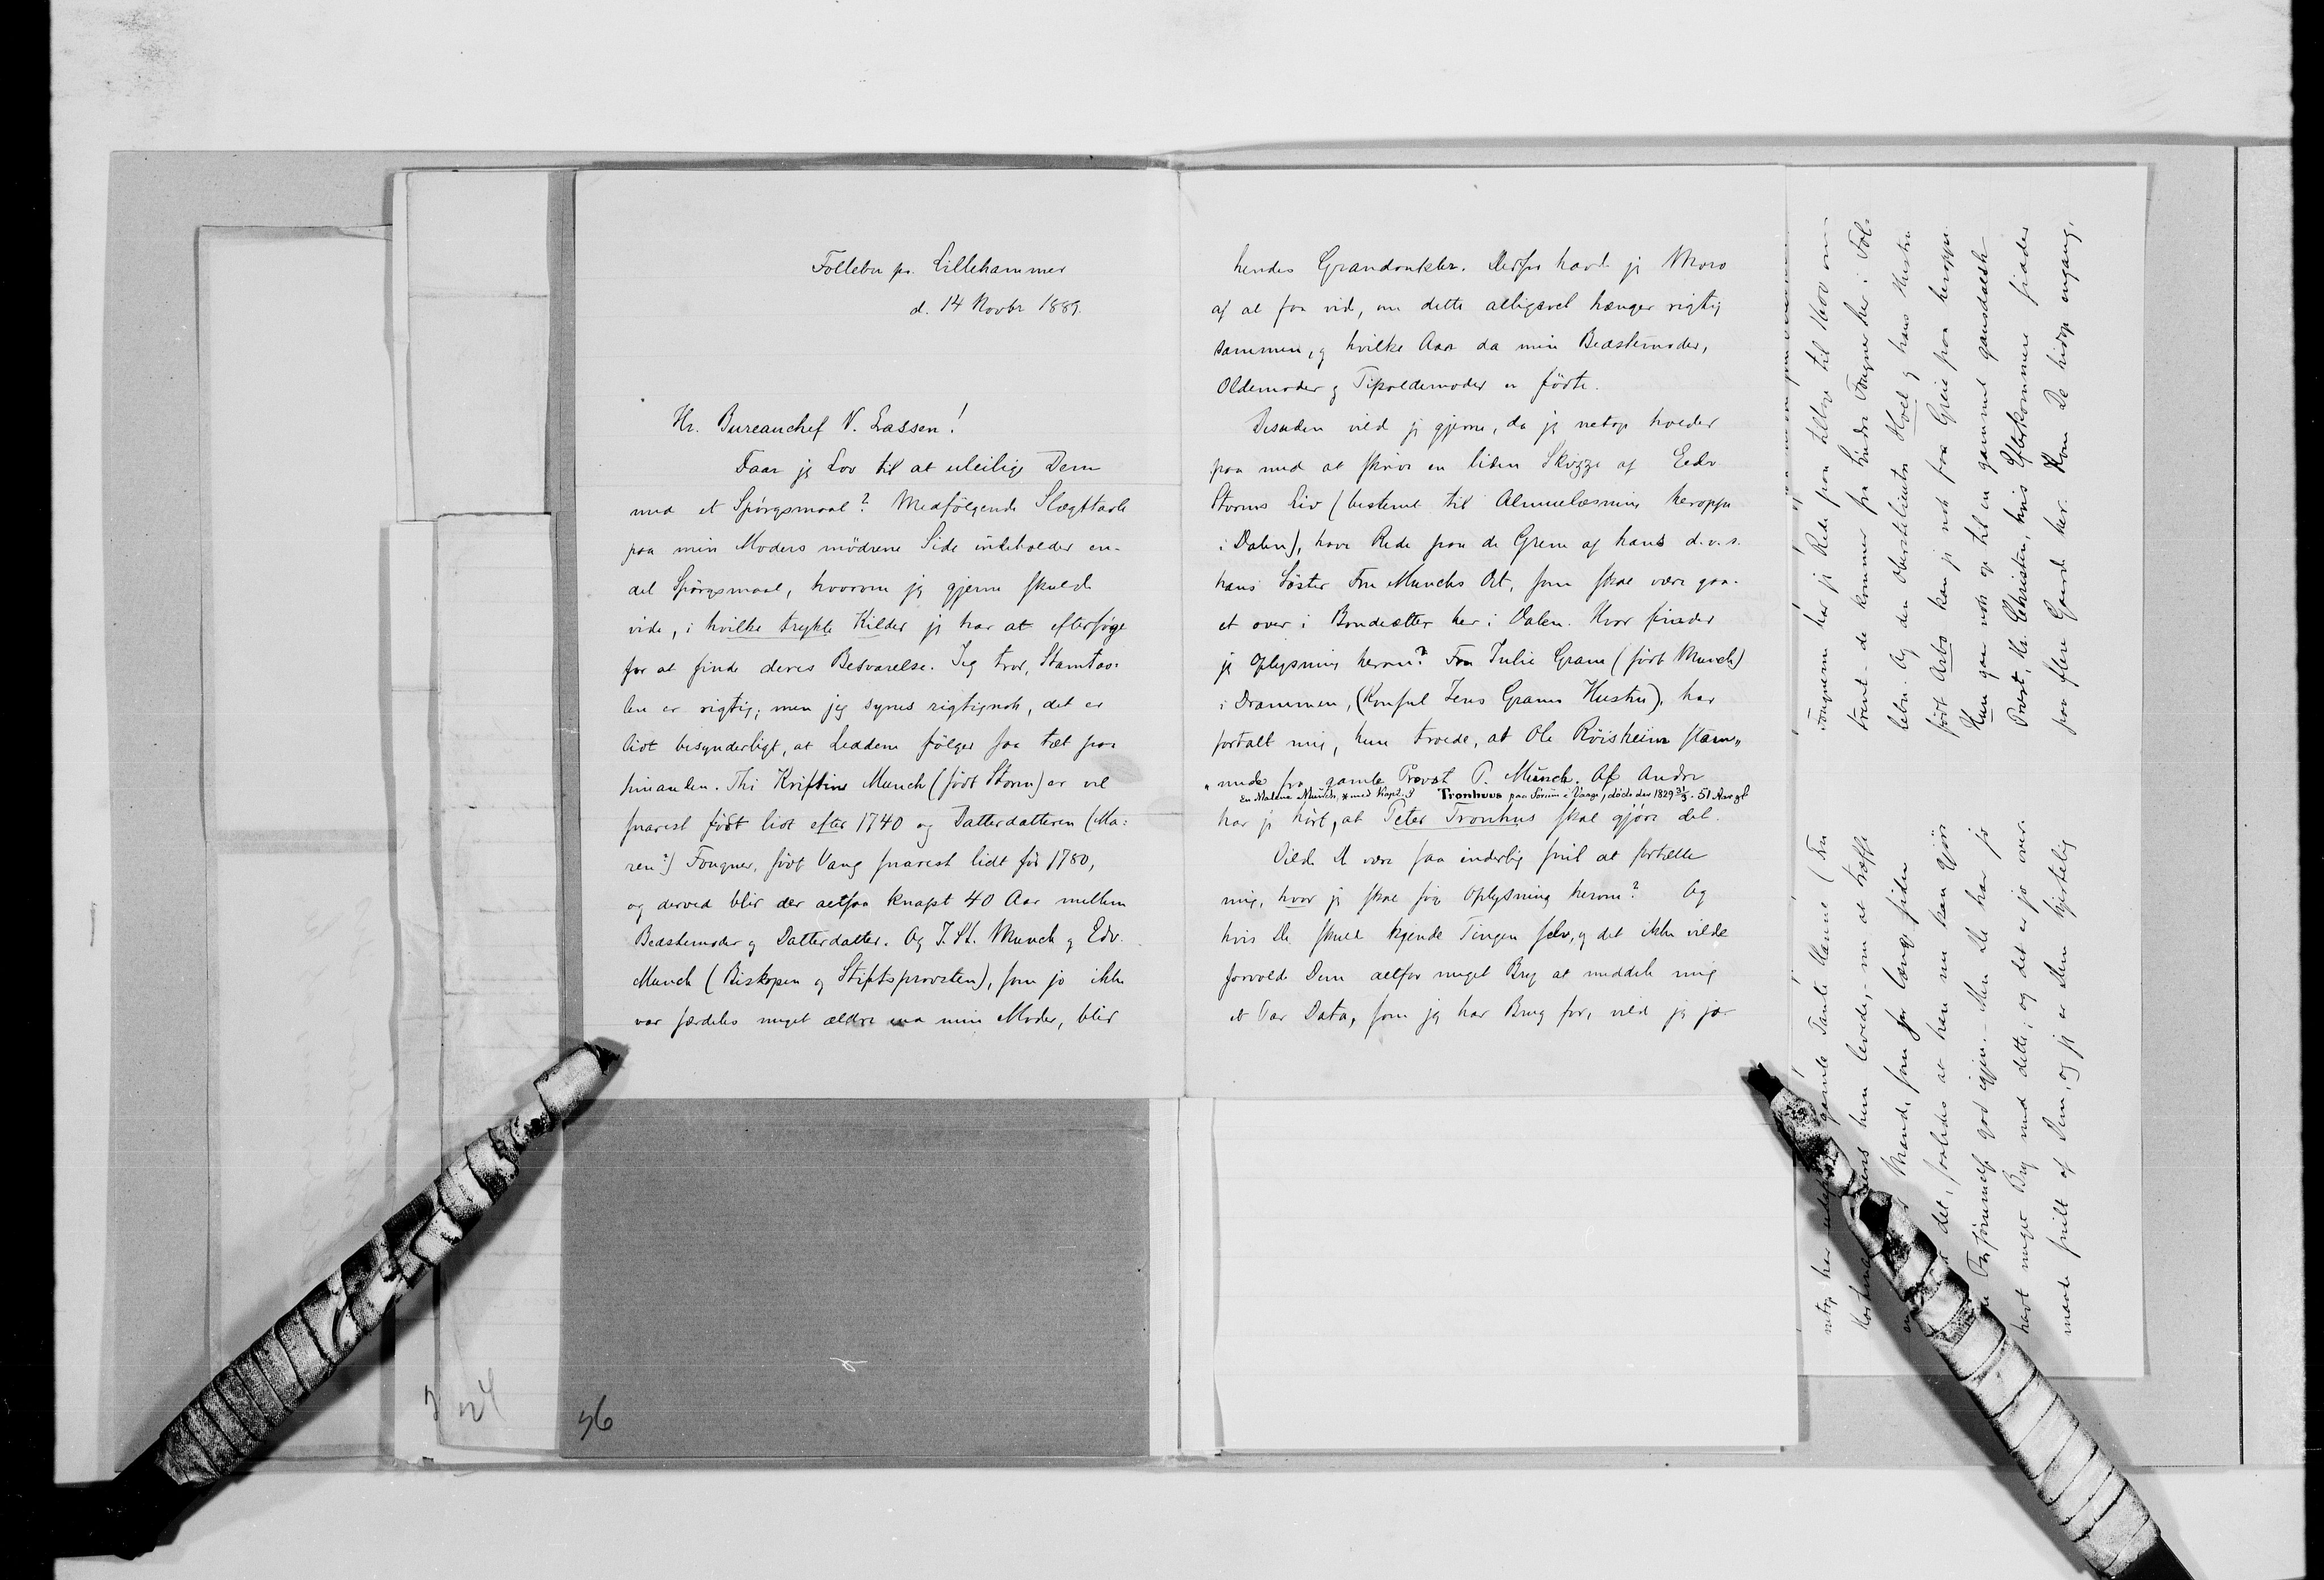 Follebu pr. Lillehammer
d. 14 Novbr 1889.
Hr. Bureauchef N. Lassen!
Faar jeg Lov til at uleilige Dem
med et Spörgsmaal? Medfölgende Slægttavle
paa min Moders mödrene Side indeholder en-
del Spörgsmaal, hvorom jeg gjerne skulde
vide, i hvilke trykte Kilder jeg har at eftersöge
for at finde deres Besvarelse. Jeg tror, Stamtav-
len er rigtig; men jeg synes rigtignok, det er
lidt besynderligt, at Leddene fölger saa tæt paa
hinanden. Thi Kristine Munch (född Storm) er vel
snarest födt lidt efter 1740 og Datterdatteren (Ma-
ren?) Fougner, född Vang snarest lidt för 1780,
og derved blir der altsaa knapt 40 Aar mellem
Bedstemoder og Datterdatter. Og J. St. Munch og Edv.
Munch (Biskopen og Stiftsprovsten), som jo ikke
var særdeles meget ældre end min Moder, blir
hendes Grandonkler. Derfor havde jeg Moro
af at faa vid, om dette alligevel hænger rigtig
sammen, og hvilke Aar da min Bedstemoder,
Oldemoder og Tipoldemoder er födte.
Desuden vilde jeg gjerne, da jeg netop holder
paa med at skrive en liden Skizze af Edv
Storms Liv (bestemt til Almuelæsning heroppe
i Dalen), have Rede paa de Grene af hans d.v.s.
hans Söster Fru Munchs Æt, som skal være gaa-
et over i Bondeætter her i Dalen. Hvor finder
jeg Oplysning herom? Fru Julie Gram (född Munch)
i Drammen, (Konsul Jens Grams Hustru), har
fortalt mig, hun troede, at Ole Röisheim stam-
mede fra gamle Provst P. Munch. Af Andre
En Malene Munch, * med Kapt. P Tronhuus paa Sörum i Vaage, döde der 1829 31/5. 51 Aar gl
har jeg hört, at Peter Tronhus skal gjöre det.
Vilde De være saa inderlig snil at fortælle
mig, hvor jeg skal söge Oplysning herom? Og
hvis De skulde kjende Tingen selv, og det ikke vilde
forvolde Dem altfor meget Bry at meddele mig
et Par Data, som jeg har Brug for, vilde jeg jo
Fougnerne har jeg Rede paa tillige til 1600 om-
trent - de kommer fra Söndre Fougner her i Fol-
lebu. Og den Oberstlieutn Hoel og hans Hustru
födt Arbo kan jeg nok faa Greie paa heroppe.
Hun gaar nok op til en gammel gausdalsk
Prest, Hr. Christen, hvis Efterkommere sidder
paa flere Gaarde her. Kom De hidop engang,
netop her gamle Tante Hanne (Fru
hun levede, - om at træffe
Mand, som for længe siden
det, saaledes at han nu kan gjöre
god igjen. - Men De har jo
havt meget Bry med dette, og det er jo over-
maade snilt af Dem, og jeg er Dem hjertelig
24
36